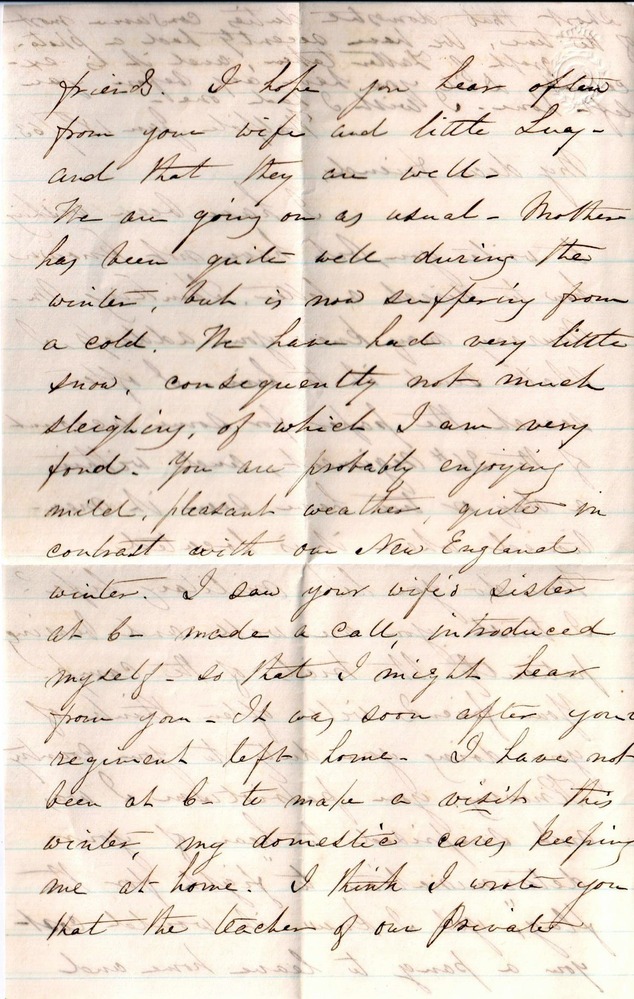 friends. I hope you hear often
from your wife and little Lucy -
and that they are well -
We are going on as usual - Mother
has been quite well during the
winter, but is now suffering from
a cold. We have had very little
snow, consequently not much
sleighing, of which I am very
fond - You are probably enjoying
mild, pleasant weather, quite in
contrast with our New England
winter. I saw your wife's sister
at C- made a call, introduced
myself - so that I might hear
from you - It was soon after your
regiment left home - I have not
been at C- to make a visit this
winter, my domestic cares keeping
me at home. I think I wrote you
that the teacher of our Private